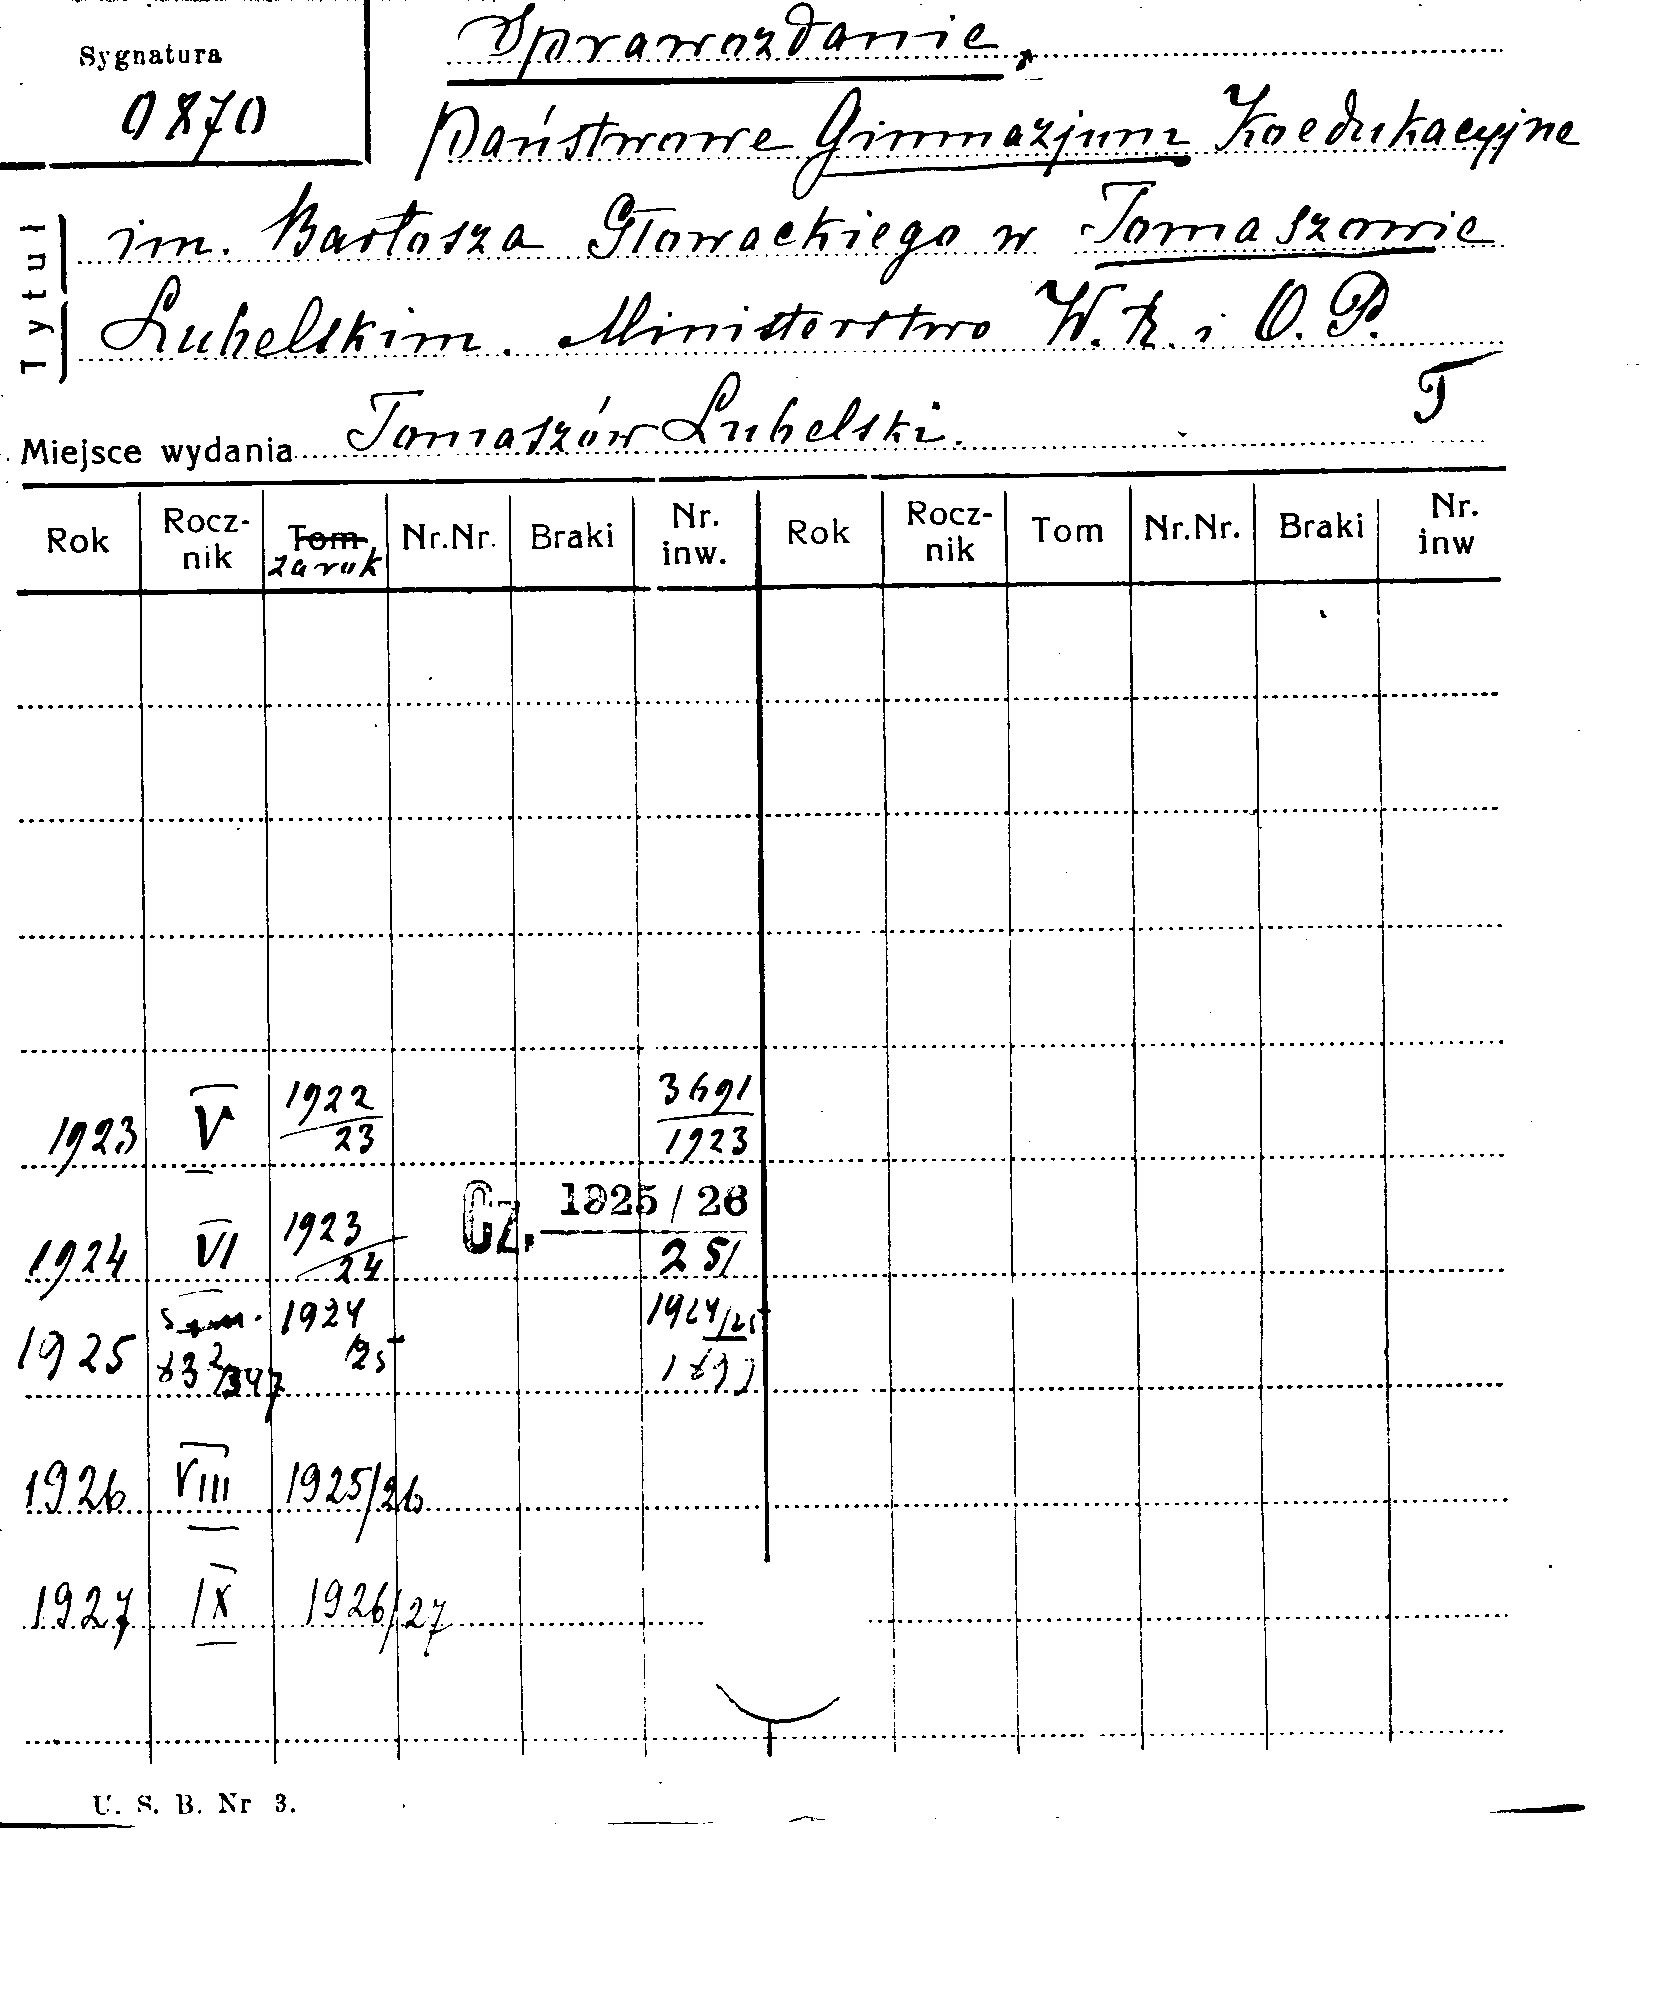 Sygnatura
0870
Sprawozdanie.
Państwowe Gimnazjum Koedukacyjne
Tytuł
im. Bartosza Głowackiego w Tomaszowie
Lubelskim. Ministerstwo W. R. i O. P.
T
Miejsce wydania Tomaszów Lubelski.
Rok Rocz-nik Tom za rok Nr.Nr. Braki Nr. inw. Rok Rocz-nik Tom Nr.Nr. Braki Nr. inw
1923 V 1922/23 3691/1923
1924 VI 1923/24 Cz. 1925/26 251
1925 1924/25 1924/25
1926 VIII 1925/26
1927 IX 1926/27
U. S. B. Nr 3.